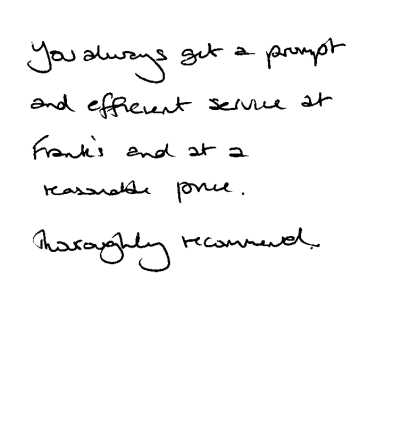 You always get a prompt
and efficient service at
Frank's and at a
reasonable price.
Thoroughly recommend.